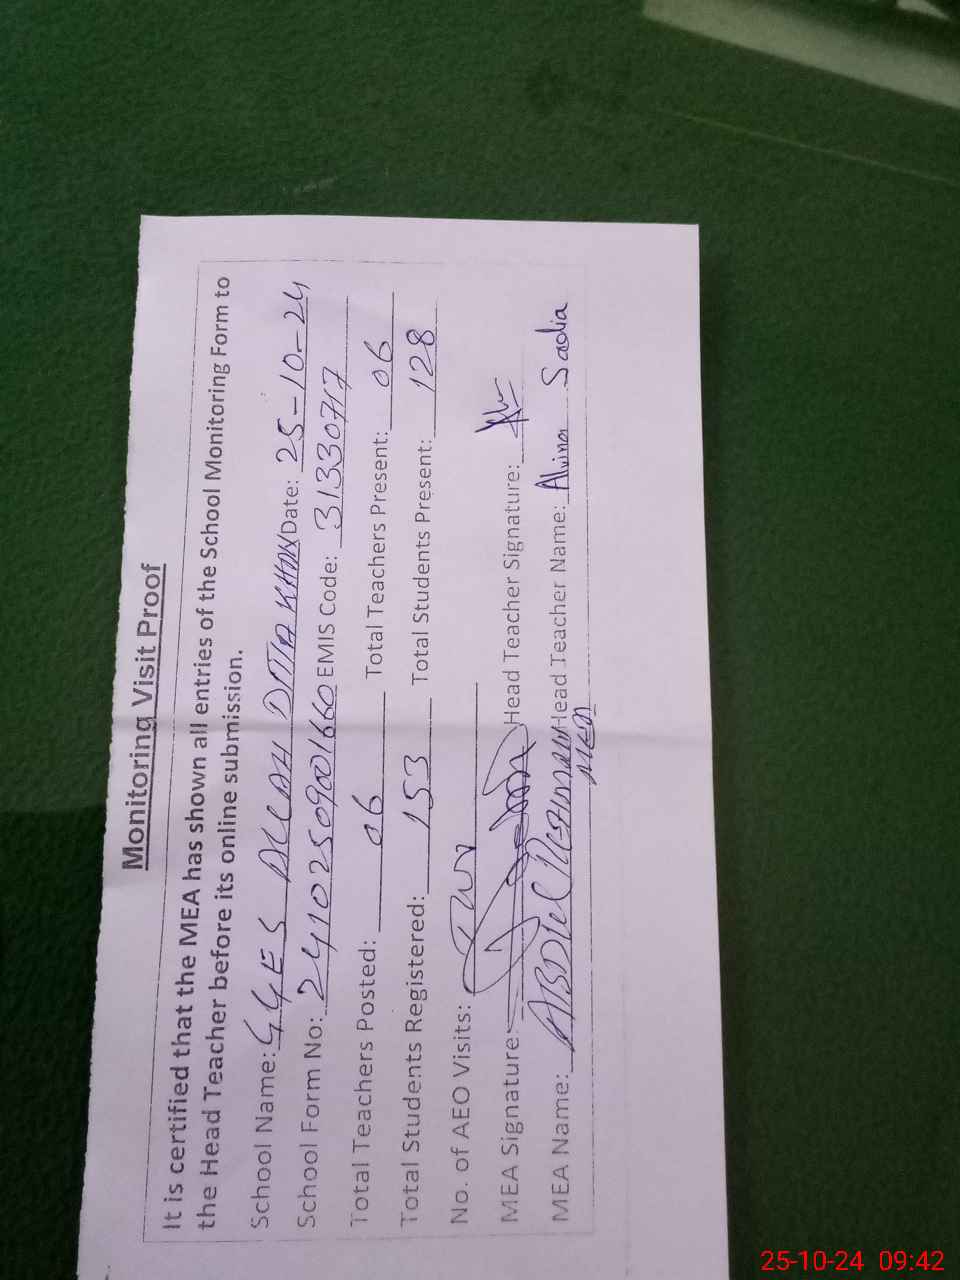 Monitoring Visit Proof
It is certified that the MEA has shown all entries of the School Monitoring Form to
the Head Teacher before its online submission.
School Name: GGES ALLAH DITTA KHAN Date: 25-10-24
School Form No: 24102509001660 EMIS Code: 31330717
Total Teachers Posted: 06 Total Teachers Present: 06
Total Students Registered: 153 Total Students Present: 128
No. of AEO Visits:
MEA Signature: Head Teacher Signature:
MEA Name: ABDUL REHMAN Head Teacher Name: Alvina Sadia
MEA
25-10-24 09:42